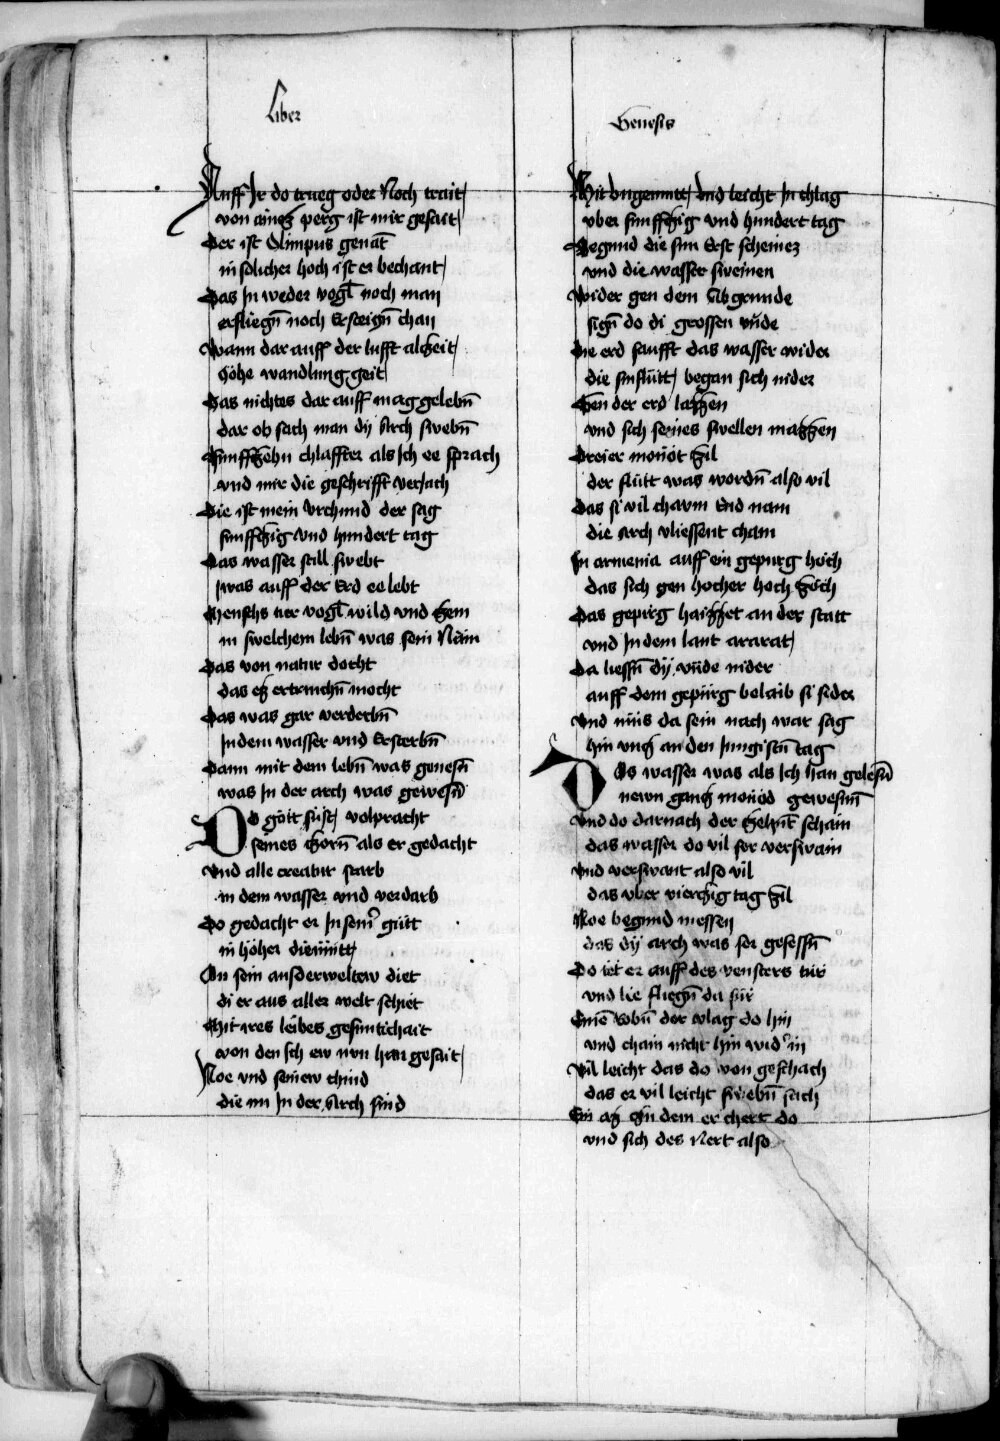 Liber
Auff Ir do trueg oder Noch trait
von ainez perg ist mir gesait
Der ist Olimpus genāt
in solicher hoch ist er bechant
Das In weder vogl noch man
erfliegn̄ noch Ersteign̄ chan
Wann dar auff der lufft alczeit
Hohe wandlung geit
Das nichtes dar auff mag gelebn̄
dar ob sach man dy Arch swebn̄
Funffczehn chlaffter als Ich ee sprach
vnd mir die geschrifft veriach
Die ist mein vrchund der sag
funffczig vnd hundert tag
Das wasser still swebt
swas auff der Erd ee lebt
Menschs tier vogl wild vnd czem
in swelchem lebn̄ was sein Nam
Das von natur docht
das ez ertrinchn̄ mocht
Das was gar verderbn̄
In dem wasser vnd Ersterbn̄
Dann mit dem lebn̄ was genesn̄
was In der arch was gewesn̄
Do gott sust volpracht
seines czorn̄ als er gedacht
Vnd alle creatur starb
in dem wasser vnd verdarb
Do gedacht er In sein̄ gutt
in hoher diemutt
An sein ausderweltew diet
di er aus aller welt schiet
Mit ires leibes gesuntichait
von den Ich ew nvn han gesait
Noe vnd seinew chind
die nu In der Arch sind
Genesis
Mit vngemutt vnd leicht In chlag
vber funffczig vnd hundert tag
Begund die sun Erst scheinez
vnd die wasser sweinen
Wider gen dem Abgrunde
sign̄ do di grossen vn̄de
Die erd saufft das wasser wider
die sinflutt began sich nider
Gen der erd lazzen
vnd sich seines swellen mazzen
Dreier monot czil
der flutt was wordn̄ also vil
Das si vil charm End nam
die Arch vliessent cham
In armenia auff ein gepurg hoch
das sich gen hocher hoch czoch
Das gepurg haizzet an der statt
vnd In dem lant ararat
Da liessn̄ dy vn̄de nider
auff dem gepurg belaib si sider
Vnd mus da sein nach war sag
hin vncz an den Iungistn̄ tag
Das wasser was als Ich han gelesn̄
newn gancz monod gewesnn̄
Vnd do darnach der czehnt schain
das wasser do vil ser verswain
Vnd verswant also vil
das vber vierczig tag czil
Noe begund messen
das dy arch was ser gesessn̄
Do tet er auff des vensters tur
vnd lie fliegn̄ da fur
Einē rabn̄ der vlag do hin
vnd cham nicht hin wider in
Vil leicht das do von geschach
das er vil leicht swebn̄ sach
Ein az czu dem er chert do
vnd sich des Nert also